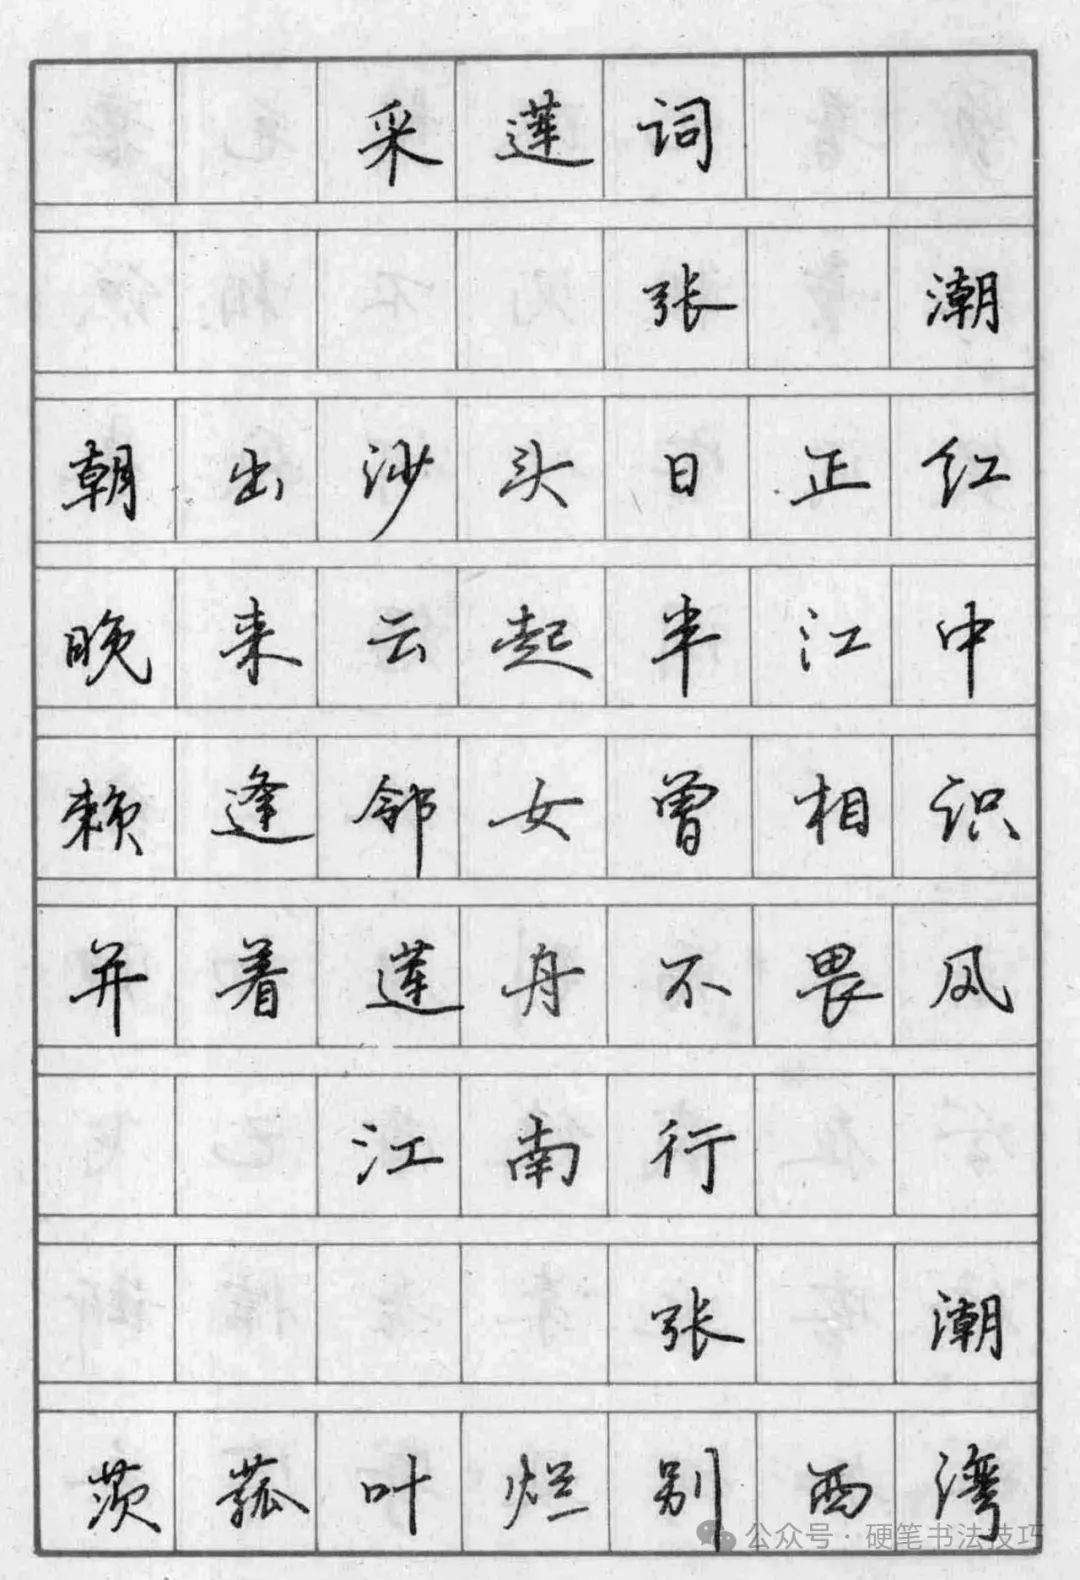 采莲词
张潮
朝出沙头日正红
晚来云起半江中
赖逢邻女曾相识
并着莲舟不畏风
江南行
张潮
茨菰叶烂别西湾
公众号·硬笔书法技巧